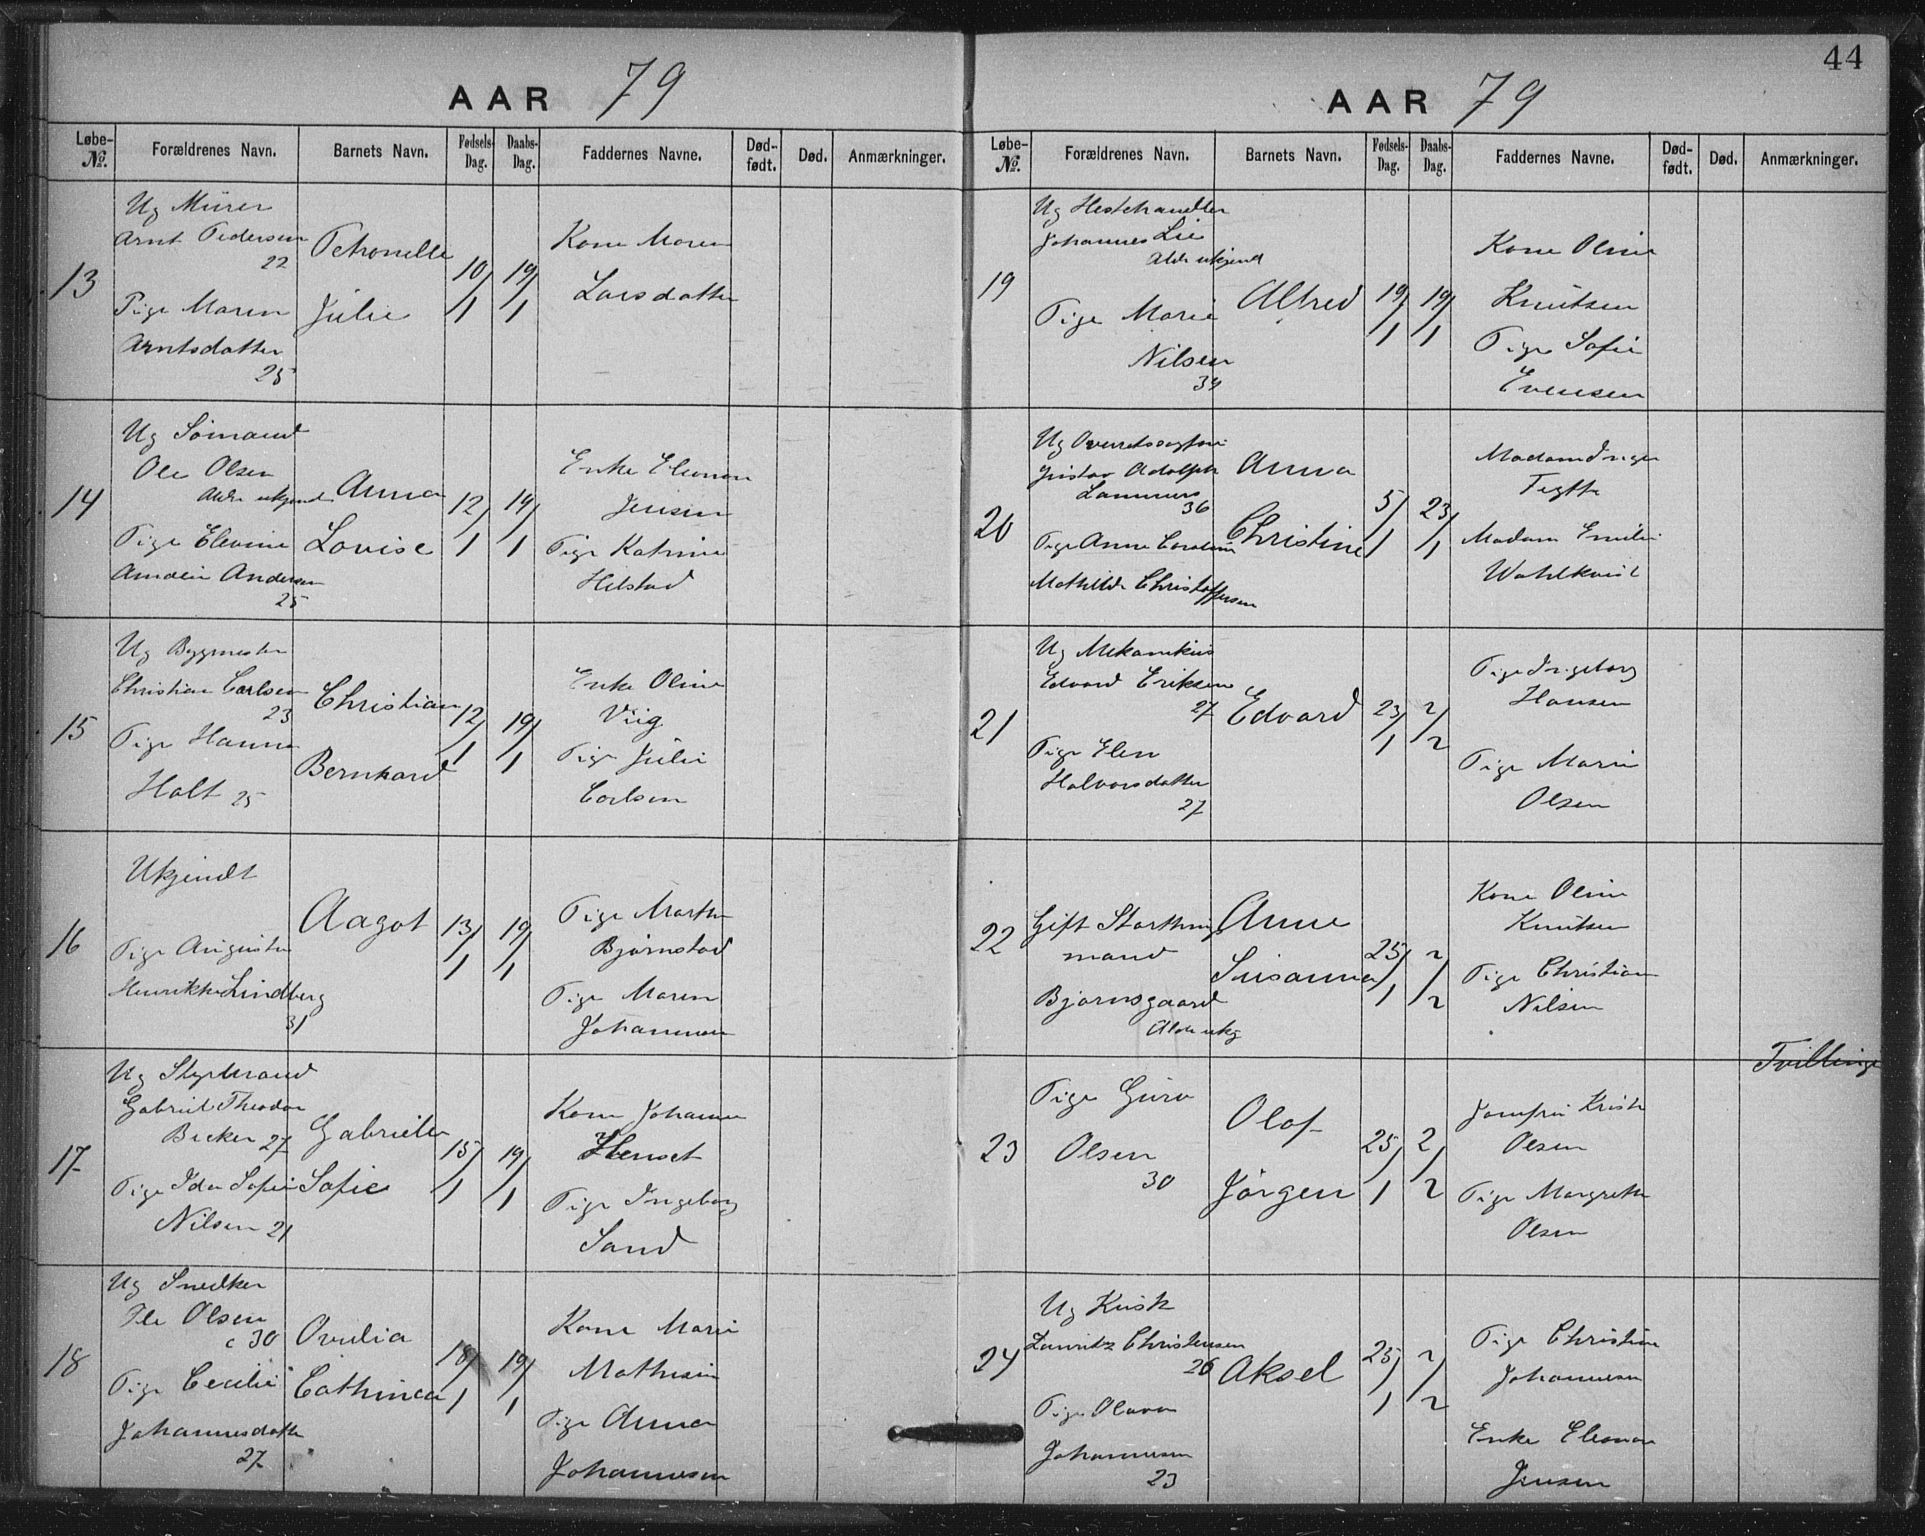 AAR 79
Løbe-No. Forældrenes Navn. Barnets Navn. Fødsels-Dag. Daabs-Dag. Faddernes Navne. Død-født. Død. Anmærkninger.
13
Ug Mürer
Arnt Pedersen
22
Pige Maren
Arntsdatter
25
Petronelle
Julie
10/1
19/1
Kone Maren
Larsdatter
14
Ug Sömand
Ole Olsen
Alder ukjendt
Pige Elevine
Andersen
25
Anna
Lovise
12/1
19/1
Enke Eleonora
Jensen
Pige Katrine
Hilstad
15
Ug Bygmester
Christian Carlsen
23
Pige Hanna
Holt 25
Christian
Bernhard
12/1
19/1
Enke Oline
Viig
Pige Julie
Carlsen
16
Ukjendt
Pige Augusta
Henrikke Lindberg
31
Aagot
13/1
19/1
Pige Marthe
Bjørnstad
Pige Maren
Johannesen
17
Ug Styrmand
Gabriel Theodor
Becker 27
Pige Ida Sofie
Nilsen 21
Gabrielle
Sofie
15/1
19/1
Kone Johanne
Pige Ingeborg
Sand
18
Ug Snedker
Ole Olsen
c 30
Pige Cecilie
Johannesdatter
27
Ovidia
Cathinca
18/1
19/1
Kone Marie
Mathisen
Pige Anna
Johannesen
44
AAR 79
Løbe-No. Forældrenes Navn. Barnets Navn. Fødsels-Dag. Daabs-Dag. Faddernes Navne. Død-født. Død. Anmærkninger.
19
Ug Hestehandler
Johannes Lie
Alder ukjend
Pige Marie
Nilsen
34
Alfred
19/1
19/1
Kone Oline
Knutsen
Pige Sofie
Evensen
20
Ug Overretssagfører
Gustav Adolph
Lammers
36
Pige Anne Caroline
Mathilde Christoffersen
Anna
Christine
5/1
23/1
Madam Inger
Madam Emilie
Wahlkvist
21
Ug Mekanikus
Edvard Eriksen
27
Pige Elen
Halvorsdatter
27
Edvard
23/1
2/2
Pige Ingeborg
Hansen
Pige Marie
Olsen
22
Gift Storthings
mand
Bjørnsgaard
Alder ukj
Anne
Susanna
25/1
2/2
Kone Oline
Knutsen
Pige Christian
Nilsen
23
Pige Guro
Olsen
30
Olof
Jörgen
25/1
2/2
Jomfru
Olsen
Pige Margrethe
Olsen
Tvillinge
24
Ug Kusk
Lauritz Christensen
26
Pige Olava
Johannesen
23
Aksel
25/1
2/2
Pige Christine
Johannesen
Enke Eleonora
Jensen